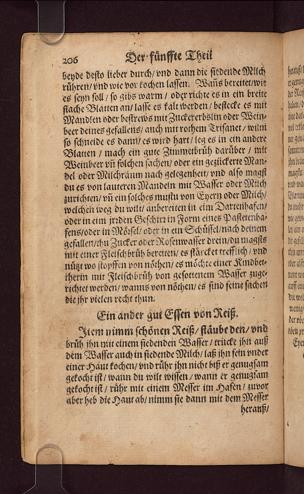 206 Der fünffte Theil
beyde desto lieber durch/ vnd dann die siedende Milch
rühren/ vnd wie vor kochen lassen. Wañs bereitet/wie
es seyn soll/ so gibs warm/ oder richte es in ein breite
flache Blatten an/ lasse es kalt werden/ bestecke es mit
Mandlen oder bestrews mit Zuckererbslin oder Wein-
beer deines gefallens/ auch mit rothem Trisanet/ wiltu
so schneide es dann/ es wird hart/ leg es in ein andere
Blatten/ mach ein gute Zimmetbrüh darüber/ mit
Weinbeer vñ solchen sachen/ oder ein gezuckerte Man-
del oder Milchraum nach gelegenheit/ vnd also magst
du es von lauteren Mandeln mit Wasser oder Milch
zurichten/ vñ ein solches mußt von Eyern oder Milch/
welchen weg du wilt/ anbereiten in ein
oder in eim jrden Geschirr in Form eines Pastetenha-
fens/oder in Mösel/ oder in ein Schüssel/nach deinem
gefallen/thu Zucker oder Rosenwasser drein/du magsts
mit einer Fleischbrüh bereiten/ es stärcket trefflich/ vnd
nützt wo stopffen von nöthen/ es möchte einer Kindbet-
therin mit Fleischbrüh von gesottenem Wasser zuge-
richtet werden/ wanns von nöthen/ es sind feine sachen
die jhr vielen recht thun.
Ein ander gut Essen von Reiß.
Item nimm schönen Reiß/ stäube den/ vnd
brüh ihn mit einem siedenden Wasser/ trückne ihn auß
dem Wasser auch in siedende Milch/ laß ihn fein vnder
einer Haut kochen/ vnd rühr ihn nicht biß er genugsam
gekocht ist/ wann du wilt wissen/ wann er genugsam
gekocht ist/ rühr mit einem Messer im Hafen/ zuvor
aber heb die Haut ab/ nimm sie dann mit dem Messer
herauß/